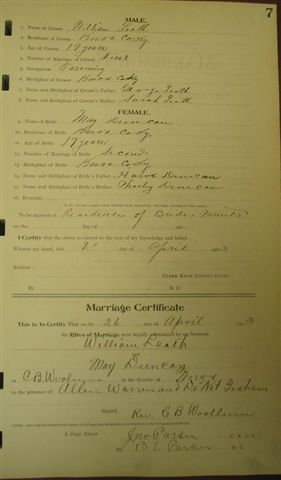 7
MALE.
1. Name of Groom William Leath
2. Residence of Groom Knox County
3. Age of Groom 19 years
4. Number of Marriage of Groom First
5. Occupation Farming
6. Birthplace of Groom Knox Co Ky
7. Name and Birthplace of Groom's Father George Leath
8. Name and Birthplace of Groom's Mother Sarah Leath
FEMALE.
9. Name of Bride May Duncan
10. Residence of Bride Knox Co Ky.
11. Age of Bride 17 years
12. Number of Marriage of Bride Second
13. Birthplace of Bride Knox County
14. Name and Birthplace of Bride's Father Duncan
15. Name and Birthplace of Bride's Mother Duncan
16. Remarks:
To be married at Residence of Brides Parents
on the day of 190
I Certify that the above is correct to the best of my knowledge and belief.
Witness my hand, this day of April 190
ATTEST:
CLERK KNOX COUNTY COURT
By D. C.
Marriage Certificate
This Is to Certify That on the 26 day of April
the Rites of Marriage were legally solemnized by me between
William Leath
May Duncan
at C.B. in the County of Knox
in the presence of Allen Warren and Graham
Signed, Rev. C B
A Copy Attest: Jno Parker C.K.C.C.
B E Parker D.C.